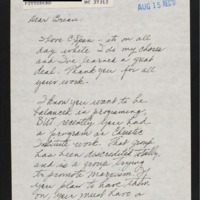 WC 37313
AUG 15 REC'D
Dear Brian,
I love C-Span - it's on all
day while I do my chores
and I've learned a great
deal. Thank you for all
your work.
I know you want to be
balanced in programing
BUT recently you had
a program on
Institute work. That group
has been discredited totally
and as a group trying
to promote Marxism. If
you plan to have them
on, you must have a